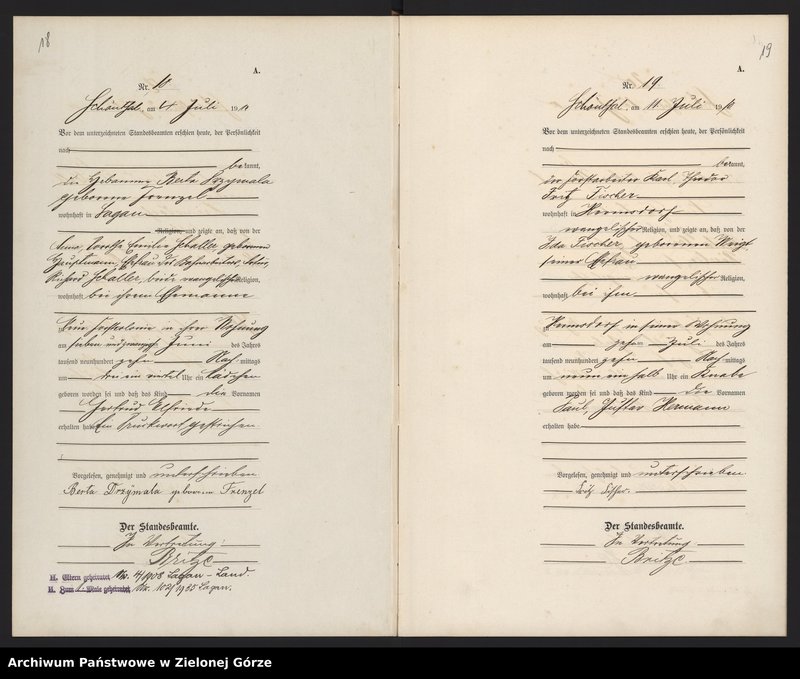 18
A.
Nr. 18
Schönthal, am 4 Juli 1910
Vor dem unterzeichneten Standesbeamten erschien heute, der Persönlichkeit
nach
bekannt,
die Hebamme Berta Drzymala
geborene Frenzel
wohnhaft in Sagan
Religion, und zeigte an, daß von der
Anna Dorothea Emilie Schaller, geborenen
Hauptmann, Ehefrau des
Richard Schaller, beide evangelischer Religion,
wohnhaft bei ihrem Ehemanne
in ihrer Wohnung
am sieben und zwanzigsten Juni des Jahres
tausend neunhundert zehn Nachmittags
um drei ein viertel Uhr ein Mädchen
geboren worden sei und daß das Kind die Vornamen
Gertrud Elfriede
erhalten habe. Ein Druckwort gestrichen
Vorgelesen, genehmigt und unterschrieben
Berta Drzymala geborene Frenzel
Der Standesbeamte.
In Vertretung:
Britze
H. Eltern geheiratet Nr. 17/1908 Sagan-Land.
H. Zum 1. Male geheiratet, Nr. 102/1935 Sagan.
19
A.
Nr. 19.
Schönthal, am 11 Juli 1910
Vor dem unterzeichneten Standesbeamten erschien heute, der Persönlichkeit
nach
bekannt,
der Forstarbeiter Karl Theodor
Fritz Fischer
wohnhaft in
evangelischer Religion, und zeigte an, daß von der
Ida Fischer geborenen
seiner Ehefrau
evangelischer Religion,
wohnhaft bei ihm
in seiner Wohnung
am zehn Juli des Jahres
tausend neunhundert zehn Nachmittags
um neun ein halb Uhr ein Knabe
geboren worden sei und daß das Kind die Vornamen
Paul, Gustav Hermann
erhalten habe.
Vorgelesen, genehmigt und unterschrieben
Fritz Fischer.
Der Standesbeamte.
In Vertretung
Britze.
Archiwum Państwowe w Zielonej Górze